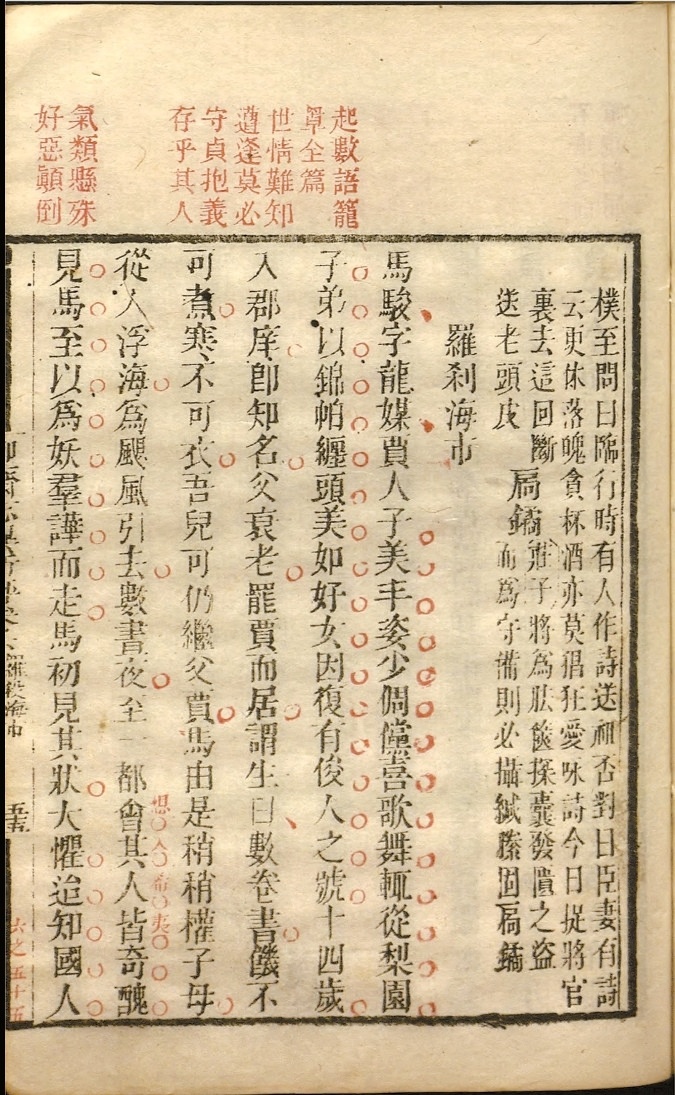 起數語籠
罩全篇
世情難知
遭逢莫必
守貞抱義
存乎其人
氣類懸殊
好惡顚倒
樸至問曰臨行時有人作詩送卿否對曰臣妻有詩
云更休落魄貪杯酒亦莫猖狂愛咏詩今日捉將官
裏去這回斷
送老頭皮
扃鐍
莊子將爲胠篋探囊發匱之盜
而爲守備則必攝緘縢固扃鐍
羅刹海市
馬駿字龍媒賈人子美丰姿少倜儻喜歌舞輒從梨園
子弟以錦帕纏頭美如好女因復有俊人之號十四歲
入郡庠卽知名父衰老罷賈而居謂生曰數卷書饑不
可煮寒不可衣吾兒可仍繼父賈馬由是稍稍權子母
想入希夷
從人浮海爲颶風引去數晝夜至一都會其人皆奇醜
見馬至以爲妖羣譁而走馬初見其狀大懼迨知國人
羅刹海市
五五
六之五十五